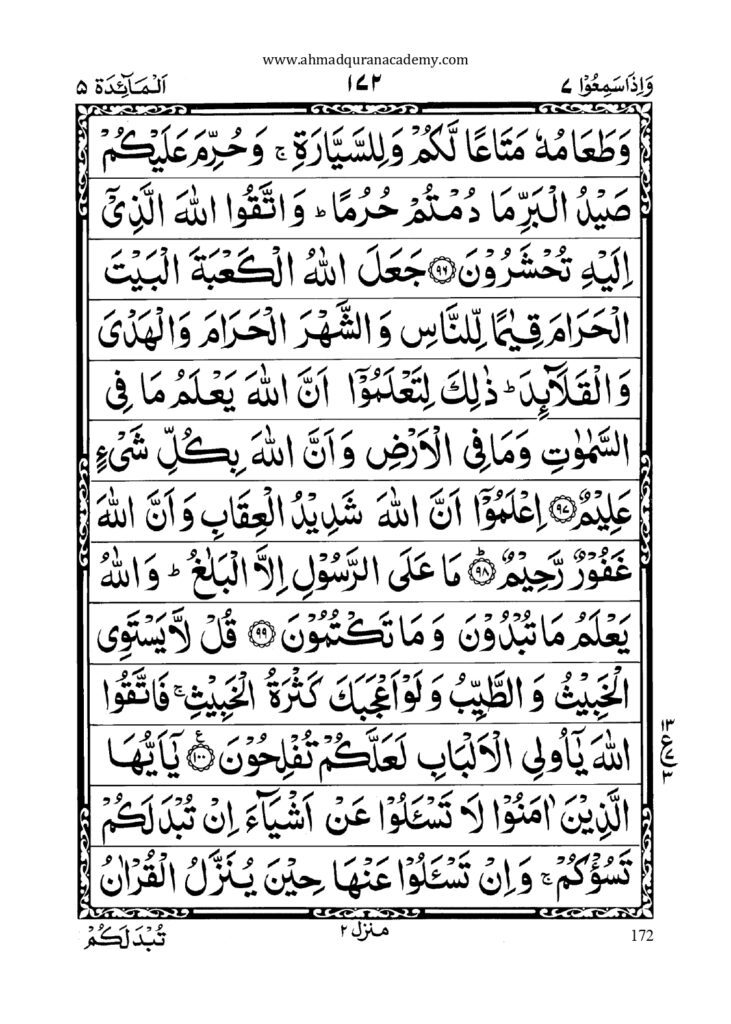 www.ahmadquranacademy.com
وَاِذَاسَمِعُوْا ٧ ١٧٢ اَلْمَآئِدَة ٥
وَطَعَامُهٗ مَتَاعًا لَّكُمْ وَلِلسَّيَّارَةِ ۚ وَحُرِّمَ عَلَيْكُمْ
صَيْدُ الْبَرِّ مَا دُمْتُمْ حُرُمًا ؕ وَاتَّقُوا اللّٰهَ الَّذِیْۤ
اِلَيْهِ تُحْشَرُوْنَ ﴿٩٦﴾ جَعَلَ اللّٰهُ الْكَعْبَةَ الْبَيْتَ
الْحَرَامَ قِيٰمًا لِّلنَّاسِ وَالشَّهْرَ الْحَرَامَ وَالْهَدْیَ
وَالْقَلَآئِدَ ؕ ذٰلِكَ لِتَعْلَمُوْۤا اَنَّ اللّٰهَ يَعْلَمُ مَا فِی
السَّمٰوٰتِ وَمَا فِی الْاَرْضِ وَاَنَّ اللّٰهَ بِكُلِّ شَیْءٍ
عَلِيْمٌ ﴿٩٧﴾ اِعْلَمُوْۤا اَنَّ اللّٰهَ شَدِيْدُ الْعِقَابِ وَاَنَّ اللّٰهَ
غَفُوْرٌ رَّحِيْمٌ ﴿٩٨﴾ؕ مَا عَلَی الرَّسُوْلِ اِلَّا الْبَلٰغُ ؕ وَاللّٰهُ
يَعْلَمُ مَا تُبْدُوْنَ وَمَا تَكْتُمُوْنَ ﴿٩٩﴾ قُلْ لَّا يَسْتَوِی
الْخَبِيْثُ وَالطَّيِّبُ وَلَوْ اَعْجَبَكَ كَثْرَةُ الْخَبِيْثِ ۚ فَاتَّقُوا
اللّٰهَ يٰۤاُولِی الْاَلْبَابِ لَعَلَّكُمْ تُفْلِحُوْنَ ﴿١٠٠﴾ع يٰۤاَيُّهَا
١٣
ع ٧
٣
الَّذِيْنَ اٰمَنُوْا لَا تَسْـَٔلُوْا عَنْ اَشْيَآءَ اِنْ تُبْدَ لَكُمْ
تَسُؤْكُمْ ۚ وَاِنْ تَسْـَٔلُوْا عَنْهَا حِيْنَ يُنَزَّلُ الْقُرْاٰنُ
172 منزل ٢ تُبْدَ لَكُمْ